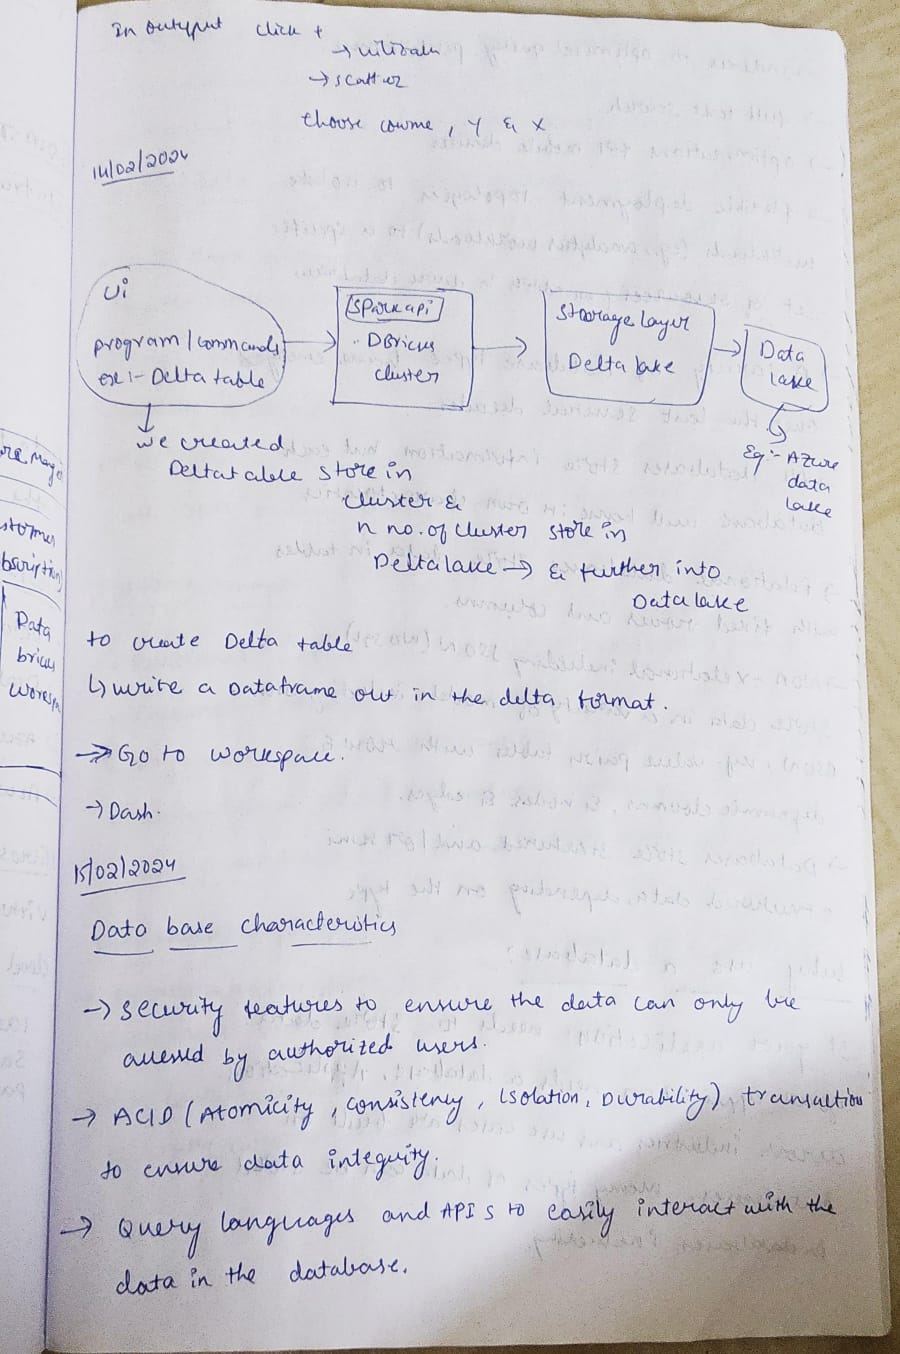 in outyput click +
→ 
→ scatter
choose cowme, Y & X
14/02/2024
Ui
program/commands
ex:- Delta table
Spark api
DBricks
cluster
Storage layer
Delta lake
Data
lake
Eg:- Azure
data
lake
we created
Deltatable store in
cluster &
n no. of cluster store in
Deltalake → & further into
Datalake
to create Delta table
↳ write a Dataframe out in the delta format.
→ Go to workspace.
→ Dash.
15/02/2024
Data base characteristics
→ security features to ensure the data can only be
accessed by authorized users.
→ ACID (Atomicity, consistency, Isolation, Durability) transaction
to ensure data integrity.
→ Query languages and APIs to easily interact with the
data in the database.
Data
bricks